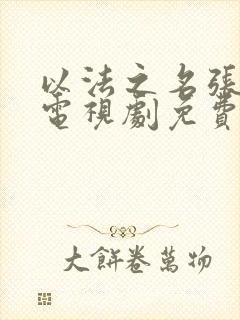 以法之名張
電視劇免費
大餅卷萬物